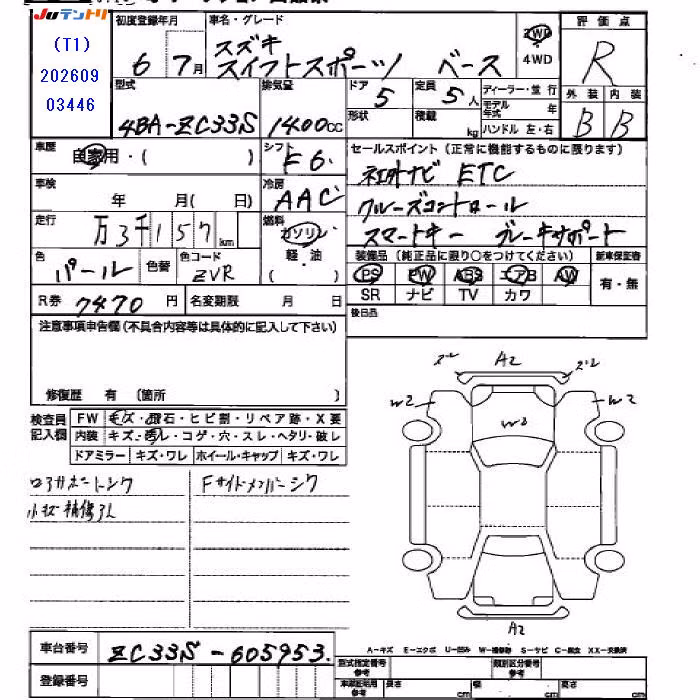 JUテントリ
(T1)
202609
03446
初度登録年月
車名・グレード
6 7月
スズキ
スイフトスポーツ ベース
2WD
4WD
評価点
R
外装 内装
B B
型式
4BA-ZC33S
排気量
1400cc
ドア
5
形状
定員
5人
積載
kg
ディーラー・並行
モデル年式 年
ハンドル 左・右
車歴
自家用・( )
シフト
F6
セールスポイント(正常に機能するものに限ります)
社外ナビ ETC
クルーズコントロール
スマートキー ブレーキサポート
車検
年 月( 日)
冷房
AAC
走行
万3千157km
燃料
ガソリン
軽・油
( )
色
パール
色替
色コード
ZVR
装備品(純正品に限り○をつけてください)
新車保証書
PS PW ABS エアB AW
SR ナビ TV カワ
有・無
R券 7470円
名変期限 月 日
後日品
注意事項申告欄(不具合内容等は具体的に記入して下さい)
修復歴 有 (箇所 )
検査員
記入欄
FW キズ・飛石・ヒビ割・リペア跡・X要
内装 キズ・汚レ・コゲ・穴・スレ・ヘタリ・破レ
ドアミラー キズ・ワレ ホイール・キャップ キズ・ワレ
小キズ 補修アト
Fサイドメンバーシワ
A2
W2
W2
W2
A2
車台番号
ZC33S-605953
登録番号
A-キズ E-エクボ U-凹み W-補修跡 S-サビ C-腐食 XX-交換済
型式指定番号
参考
類別区分番号
参考
車庫証明用
参考
長さ cm 幅 cm 高さ cm